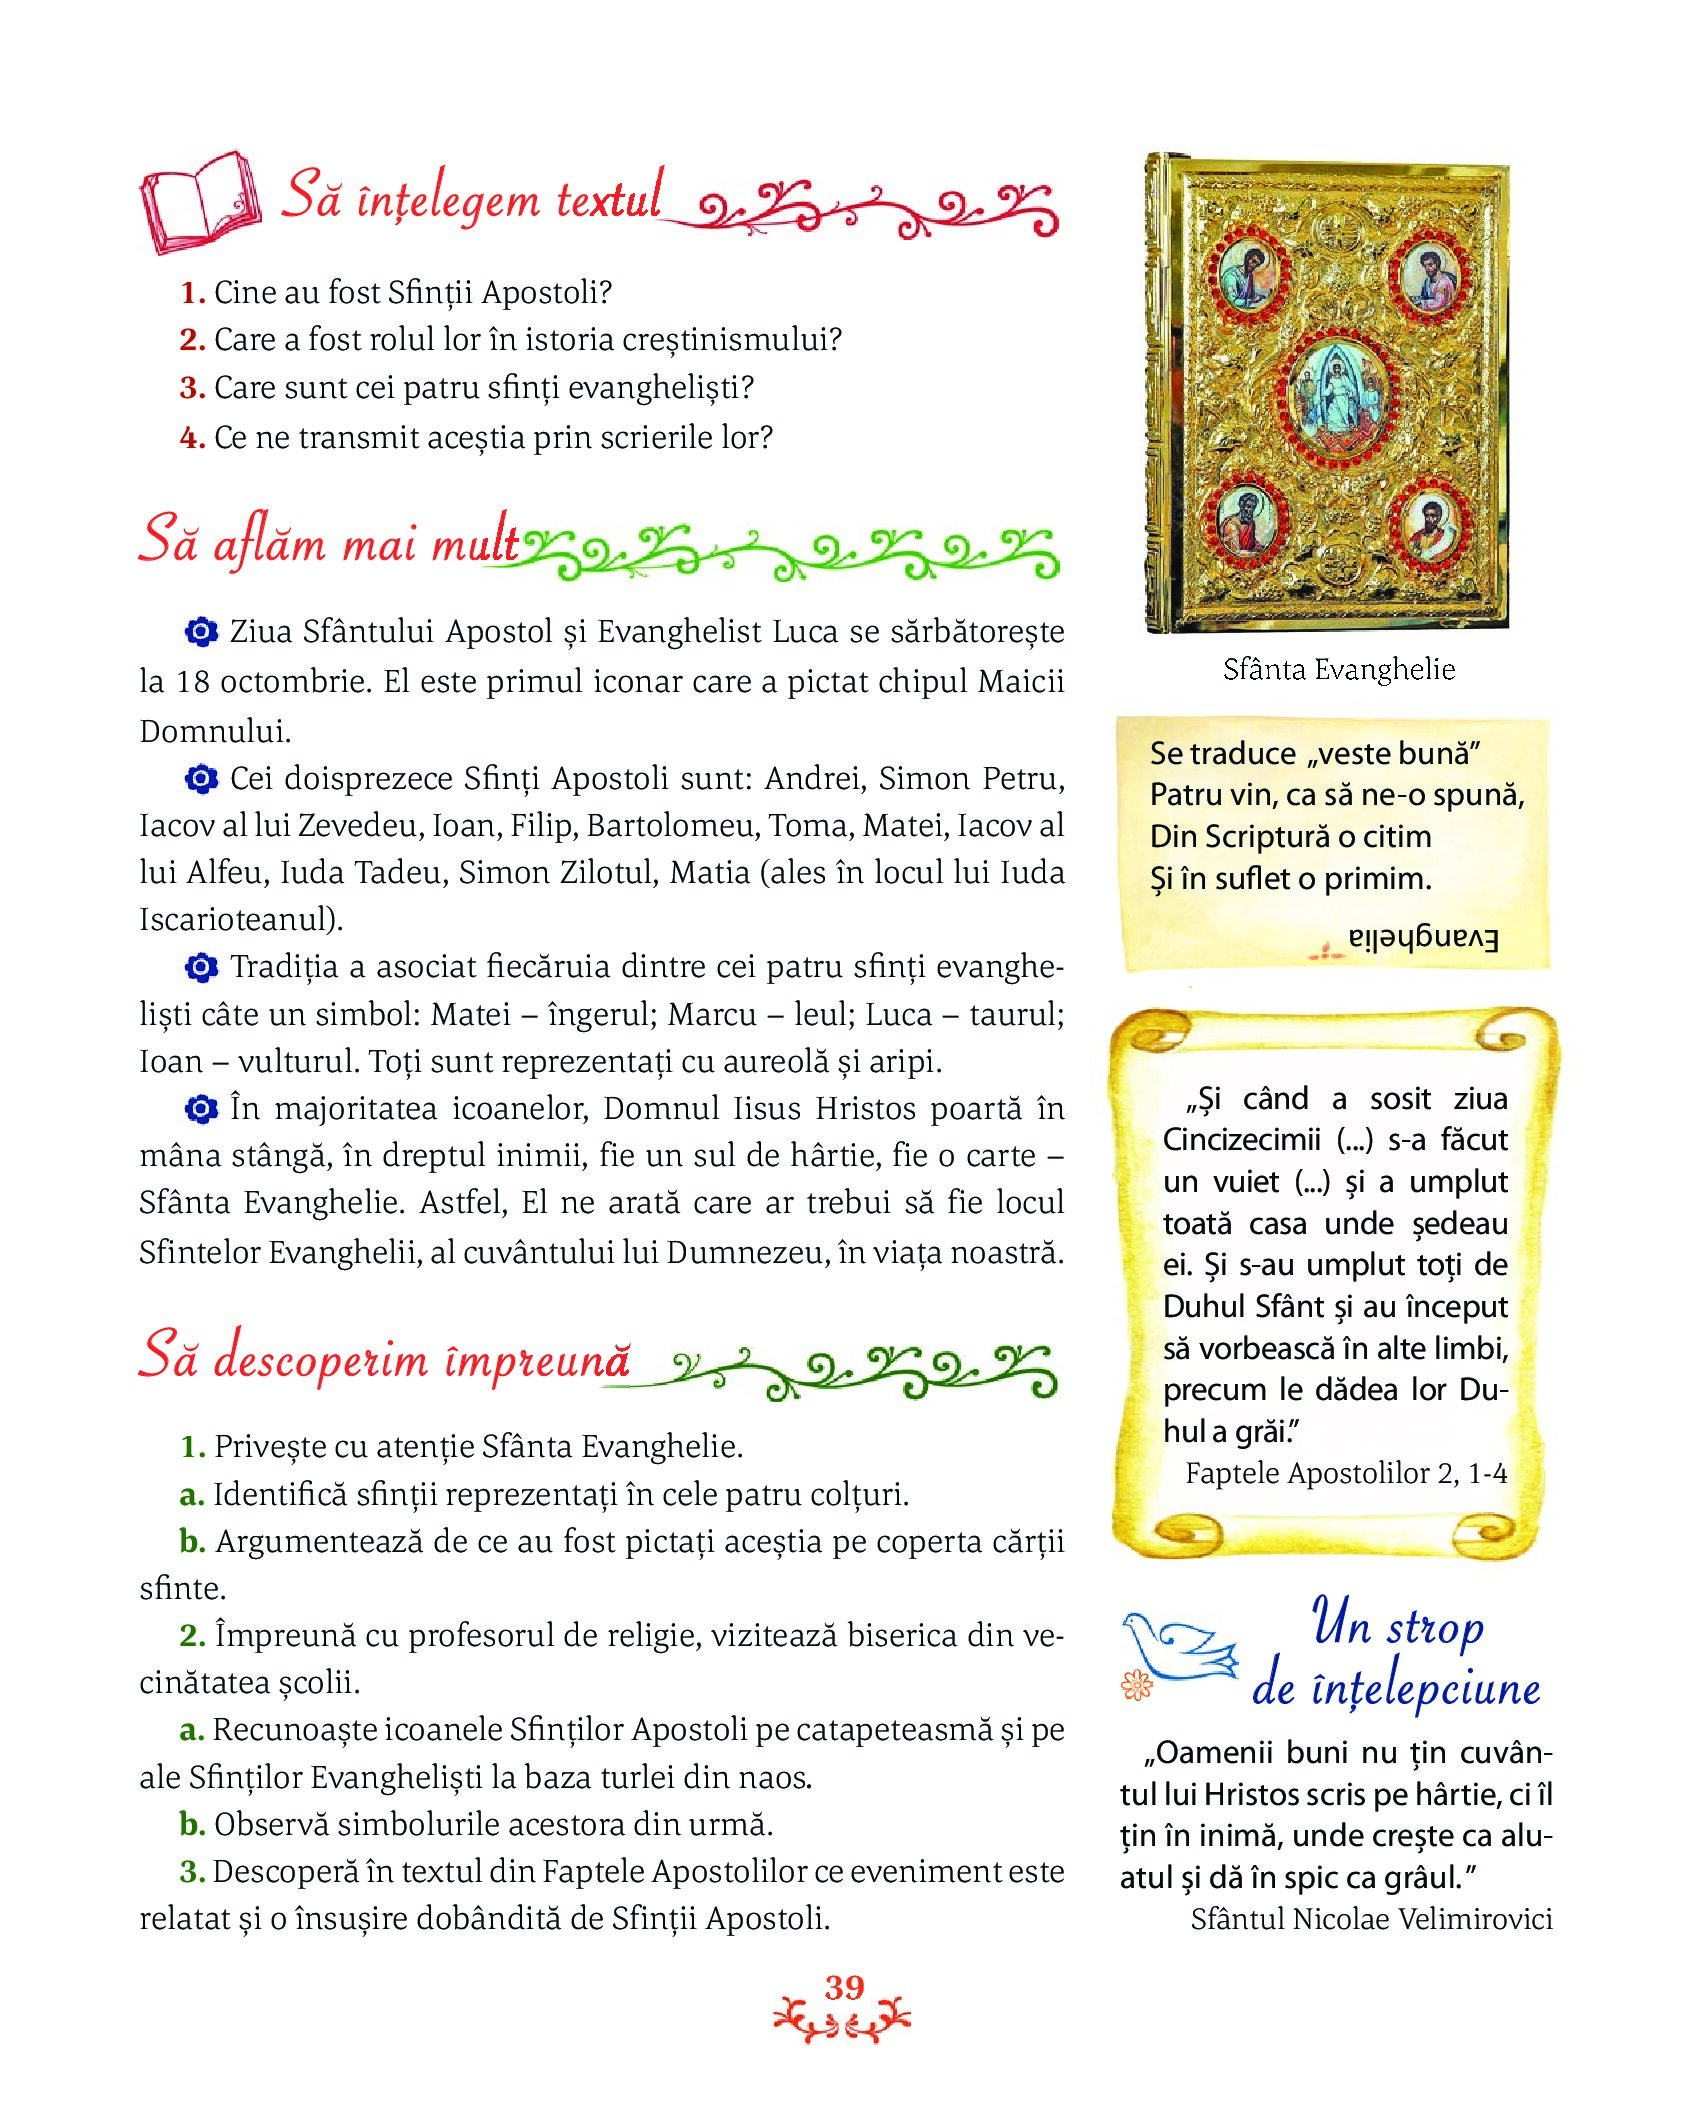 Să înțelegem textul
1. Cine au fost Sfinții Apostoli?
2. Care a fost rolul lor în istoria creștinismului?
3. Care sunt cei patru sfinți evangheliști?
4. Ce ne transmit aceștia prin scrierile lor?
Să aflăm mai mult
Ziua Sfântului Apostol și Evanghelist Luca se sărbătorește
la 18 octombrie. El este primul iconar care a pictat chipul Maicii
Domnului.
Cei doisprezece Sfinți Apostoli sunt: Andrei, Simon Petru,
Iacov al lui Zevedeu, Ioan, Filip, Bartolomeu, Toma, Matei, Iacov al
lui Alfeu, Iuda Tadeu, Simon Zilotul, Matia (ales în locul lui Iuda
Iscarioteanul).
Tradiția a asociat fiecăruia dintre cei patru sfinți evanghe-
liști câte un simbol: Matei – îngerul; Marcu – leul; Luca – taurul;
Ioan – vulturul. Toți sunt reprezentați cu aureolă și aripi.
În majoritatea icoanelor, Domnul Iisus Hristos poartă în
mâna stângă, în dreptul inimii, fie un sul de hârtie, fie o carte –
Sfânta Evanghelie. Astfel, El ne arată care ar trebui să fie locul
Sfintelor Evanghelii, al cuvântului lui Dumnezeu, în viața noastră.
Să descoperim împreună
1. Privește cu atenție Sfânta Evanghelie.
a. Identifică sfinții reprezentați în cele patru colțuri.
b. Argumentează de ce au fost pictați aceștia pe coperta cărții
sfinte.
2. Împreună cu profesorul de religie, vizitează biserica din ve-
cinătatea școlii.
a. Recunoaște icoanele Sfinților Apostoli pe catapeteasmă și pe
ale Sfinților Evangheliști la baza turlei din naos.
b. Observă simbolurile acestora din urmă.
3. Descoperă în textul din Faptele Apostolilor ce eveniment este
relatat și o însușire dobândită de Sfinții Apostoli.
Sfânta Evanghelie
Se traduce „veste bună”
Patru vin, ca să ne-o spună,
Din Scriptură o citim
Și în suflet o primim.
Evanghelia
„Și când a sosit ziua
Cincizecimii (...) s-a făcut
un vuiet (...) și a umplut
toată casa unde ședeau
ei. Și s-au umplut toți de
Duhul Sfânt și au început
să vorbească în alte limbi,
precum le dădea lor Du-
hul a grăi.”
Faptele Apostolilor 2, 1-4
Un strop
de înțelepciune
„Oamenii buni nu țin cuvân-
tul lui Hristos scris pe hârtie, ci îl
țin în inimă, unde crește ca alu-
atul și dă în spic ca grâul.”
Sfântul Nicolae Velimirovici
39